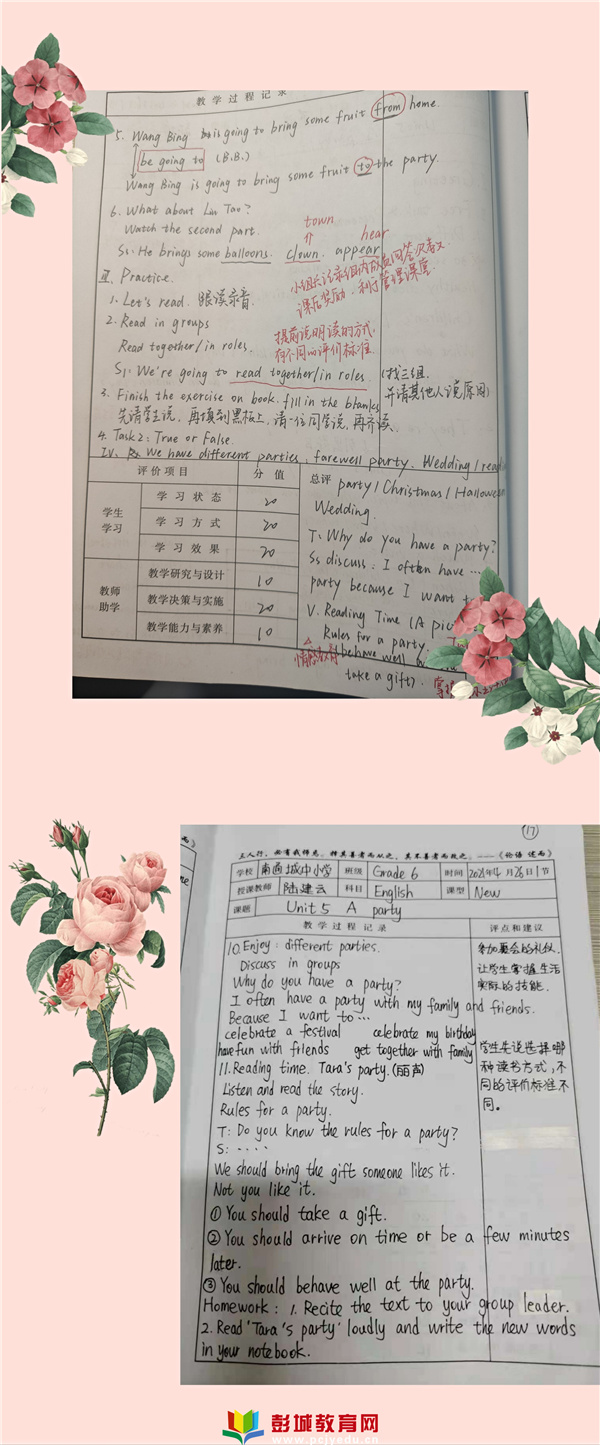 教学过程记录
5. Wang Bing is going to bring some fruit from home.
be going to (B.B.)
Wang Bing is going to bring some fruit to the party.
6. What about Liu Tao?
Watch the second part.
town hear
Ss: He brings some balloons. clown. appear
III. Practice.
1. Let's read. 跟读录音.
课后奖励, 利于管理课堂
2. Read in groups
提前说明读的方式,
Read together/in roles.
有不同的评价标准.
S1: We're going to read together/in roles. (找三组,
并请其他人说原因)
3. Finish the exercise on book. fill in the blanks
先请学生说, 再填到黑板上, 请一位同学说, 再齐读.
4. Task 2: True or False.
IV. We have different parties, farewell party. Wedding / read
评价项目 分值 总评
party / Christmas / Halloween
Wedding.
学生学习
学习状态 20
学习方式 20
学习效果 20
教师助学
教学研究与设计 10
教学决策与实施 20
教学能力与素养 10
T: Why do you have a party?
Ss discuss: I often have ...
party because I want t
V. Reading Time (A pic
Rules for a party.
情感教育
behave well
take a gift).
17
三人行，必有我师焉。择其善者而从之，其不善者而改之。——《论语 述而》
学校 南通城中小学 班级 Grade 6 时间 2021年4月26日1节
授课教师 陆建云 科目 English 课型 New
课题 Unit 5 A party
教学过程记录 评点和建议
10. Enjoy: different parties.
Discuss in groups
Why do you have a party?
I often have a party with my family and friends.
Because I want to ...
celebrate a festival celebrate my birthday
have fun with friends get together with family
参加宴会的礼仪.
让学生掌握生活
实际的技能.
11. Reading time. Tara's party. (丽声)
Listen and read the story.
Rules for a party.
学生先说选择哪
种读书方式, 不
同的评价标准不
同。
T: Do you know the rules for a party?
S: ....
We should bring the gift someone likes it.
Not you like it.
① You should take a gift.
② You should arrive on time or be a few minutes
later.
③ You should behave well at the party.
Homework: 1. Recite the text to your group leader.
2. Read 'Tara's party' loudly and write the new words
in your notebook.
彭城教育网
www.pcjyedu.cn